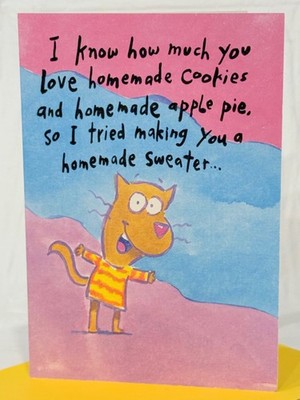 I know how much you
love homemade cookies
and homemade apple pie,
so I tried making you a
homemade sweater...